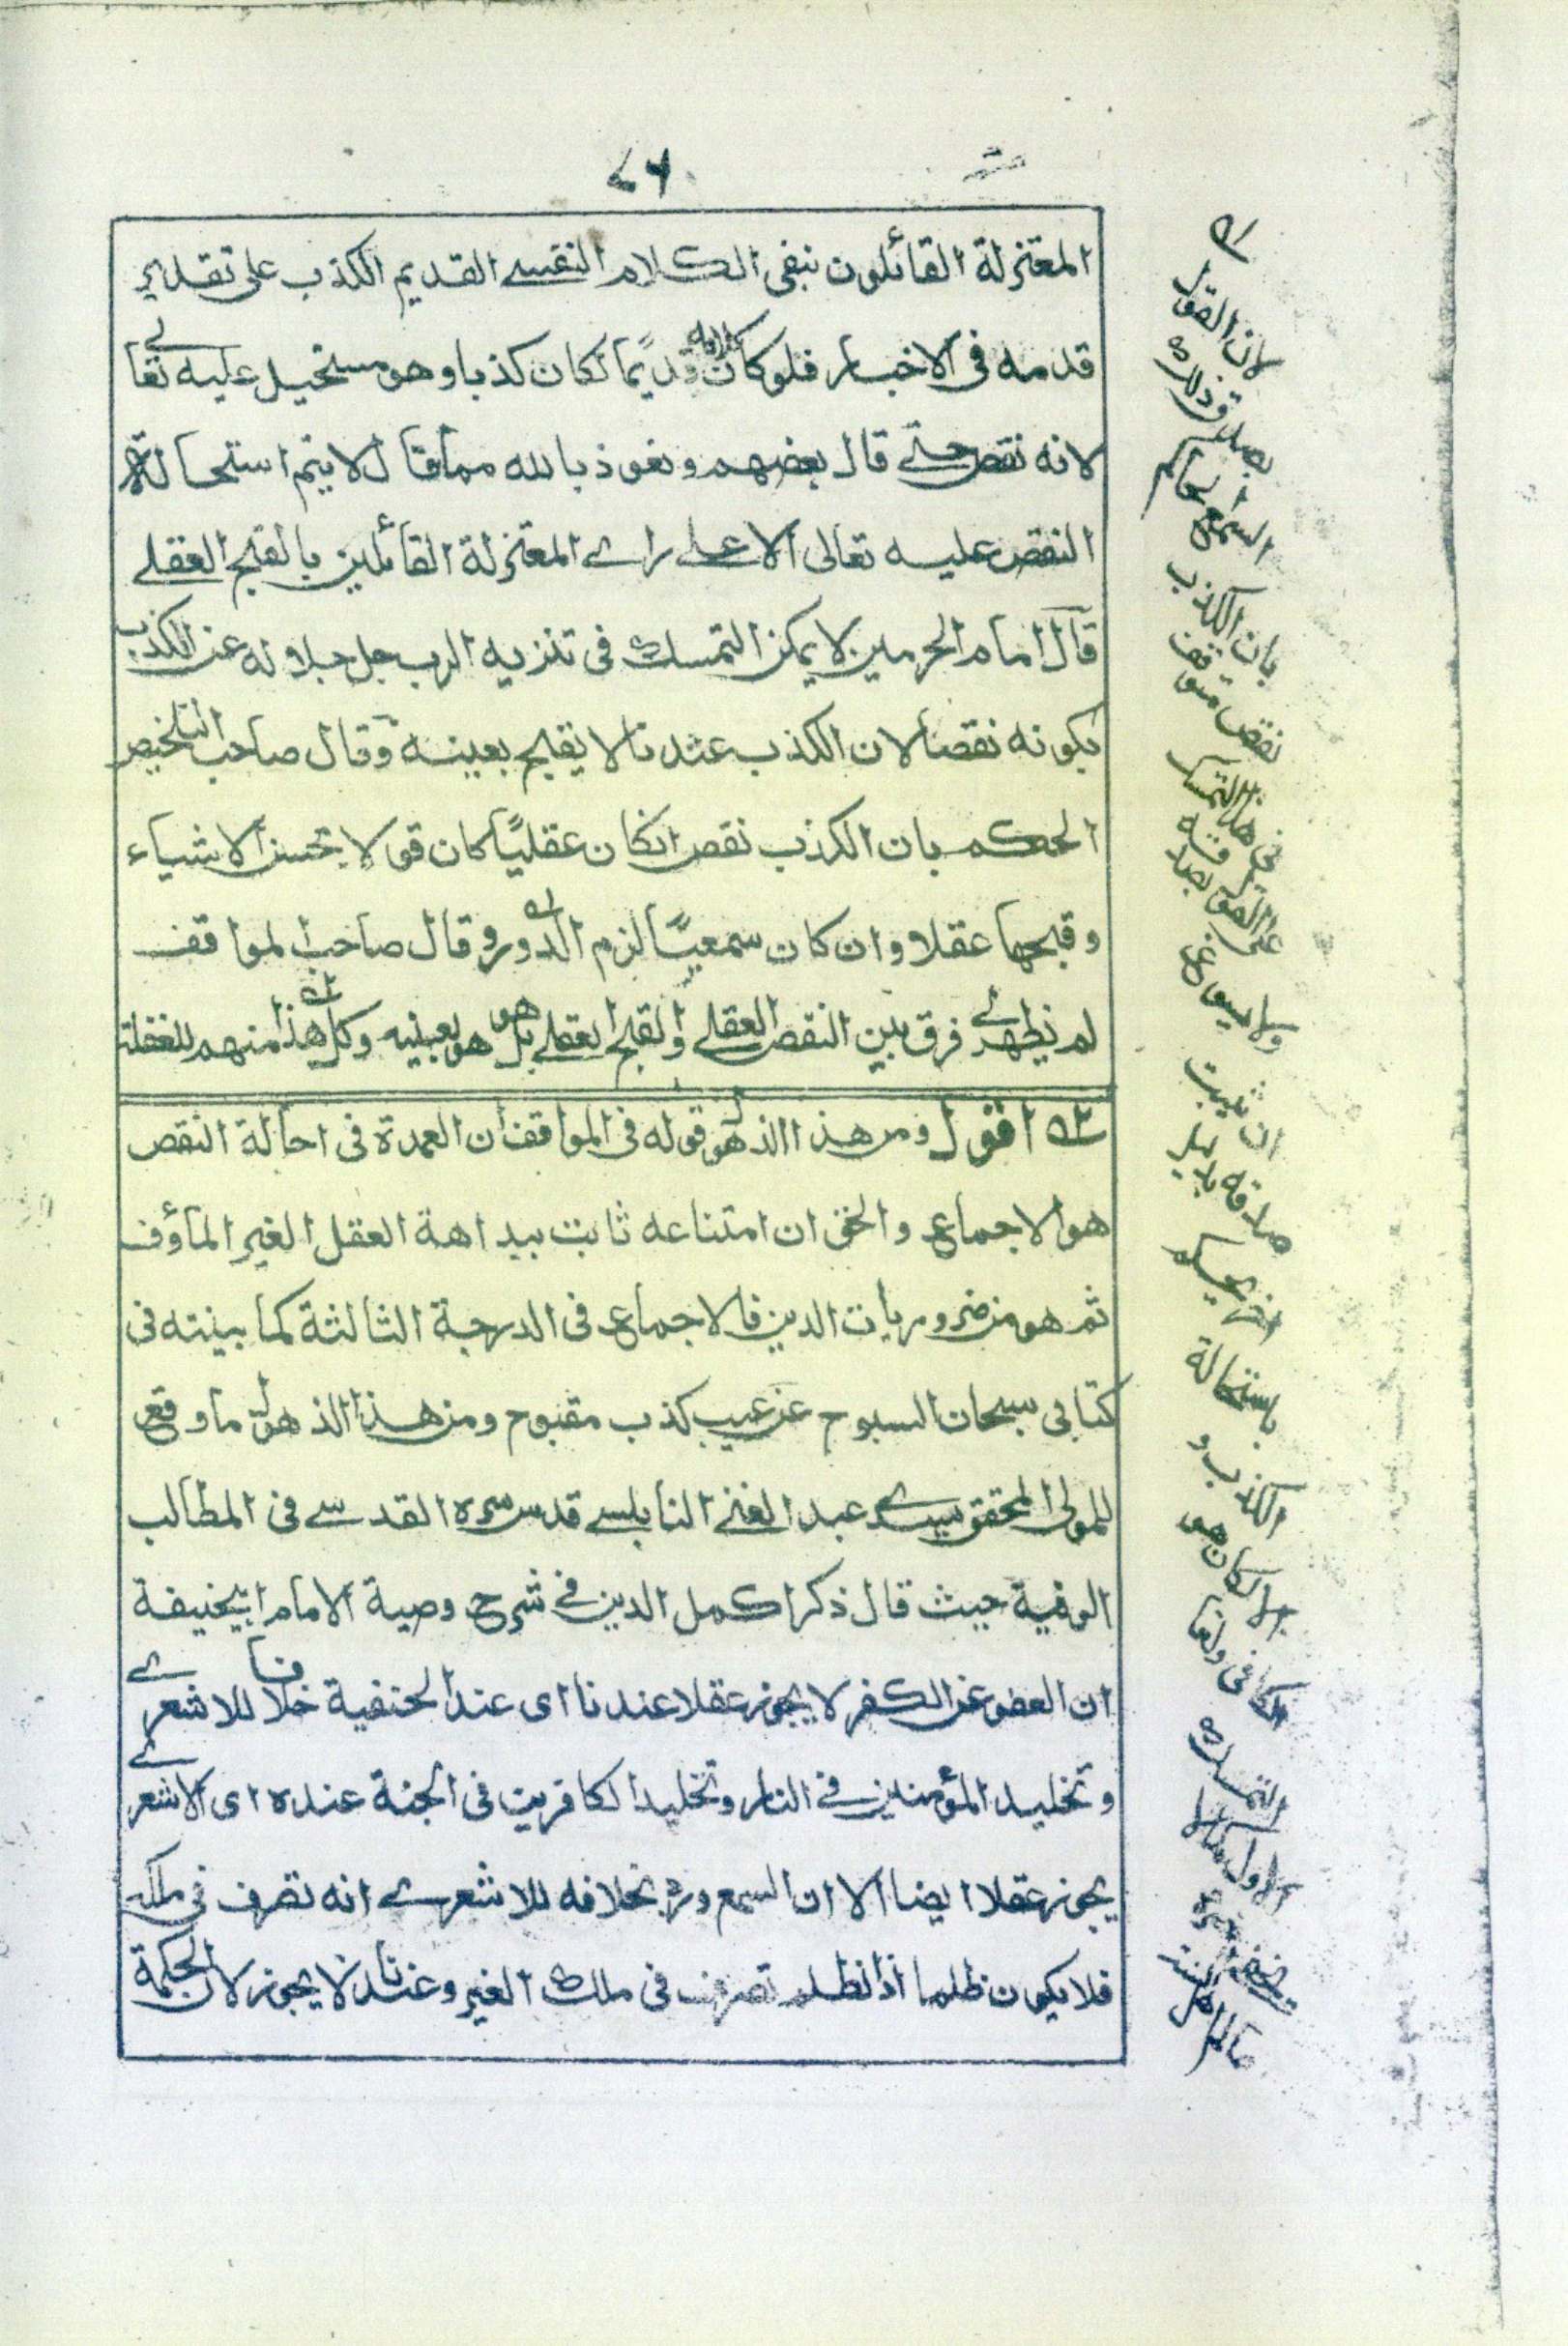 ٤٦
المعتزلة القائلون بنفى الكلام النفسے القديم الكذب على تقدير
قدمه فى الاخبار فلو كان كلامه قديمًا لكان كذبا وهو مستحيل عليه تعالے
لانه نقص حتے قال بعضهم ونعوذ بالله مما قال لا يتم استحالة
النقص عليه تعالى الا علے راے المعتزلة القائلين بالقبح العقلے
قال امام الحرمين لا يمكن التمسك فى تنزيه الرب جل جلاله عن الكذب
بكونه نقصا لان الكذب عندنا لا يقبح بعينه وقال صاحب التلخيص
الحكم بان الكذب نقص انكان عقليًا كان قولا بحسن الاشياء
وقبحها عقلا وان كان سمعيًا لزم الدور وقال صاحب المواقف
لم يظهر لے فرق بين النقص العقلے والقبح العقلے بل هو هو بعينه وكل هذا منهم للغفلة
اقول ومن هذا الذهول قوله فى المواقف ان العمدة فى احالة النقص
هو الاجماع والحق ان امتناعه ثابت ببداهة العقل الغير المأوف
ثم هو من ضروريات الدين فالاجماع فى الدرجة الثالثة كما بينته فى
كتابى سبحان السبوح عن عيب كذب مقبوح ومن هذا الذهول ما وقع
للمولى المحقق سيدے عبد الغنے النابلسے قدس سره القدسے فى المطالب
الوفية حيث قال ذكر اكمل الدين فے شرح وصية الامام ابيحنيفة
ان العفو عن الكفر لا يجوز عقلا عندنا اى عند الحنفية خلافا للاشعرے
وتخليد المؤمنين فے النار وتخليد الكافرين فى الجنة عنده اى الاشعرے
يجوز عقلا ايضا الا ان السمع ورد بخلافه للاشعرے انه تصرف فى ملكه
فلا يكون ظلما اذ الظلم تصرف فى ملك الغير وعندنا لا يجوز لان الحكمة
لان القول
بصدق ذلك
السمعى الحاكم
بان الكذب
نقص متوقف
على القول بصدقه
ولا يسوغ
ان يثبت
صدقه بدليل
باستحالة
الكذب و